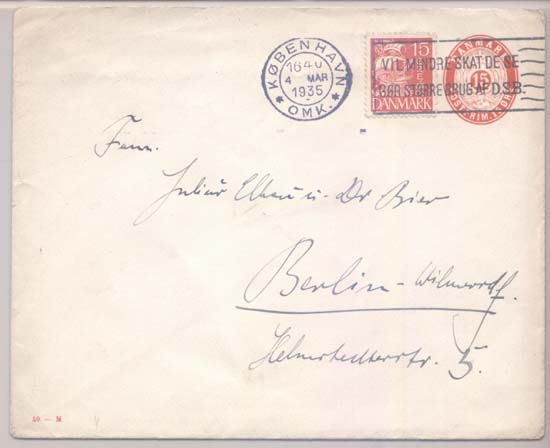 KØBENHAVN
1640
4 MAR
1935
* OMK. *
15
DANMARK
DANMARK
15
VIL MINDRE SKAT DE SE
GØR STØRRE BRUG AF D.S.B.
Julius u. Dr Bier
Berlin-Wilmersdf.
Helmstedterstr. 5.
50 — M